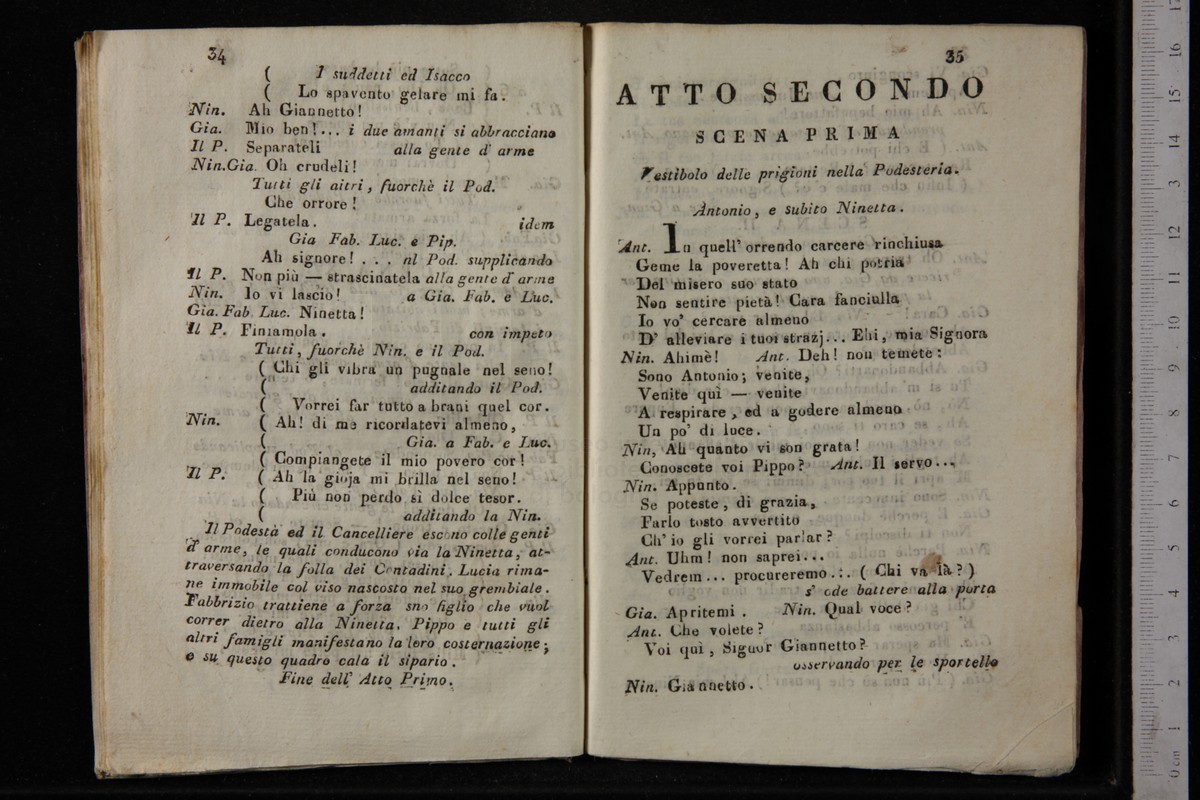 34
( I suddetti ed Isacco
( Lo spavento gelare mi fa.
Nin. Ah Giannetto!
Gia. Mio ben!... i due amanti si abbracciano
Il P. Separateli alla gente d' arme
Nin.Gia. Oh crudeli!
Tutti gli altri, fuorchè il Pod.
Che orrore!
Il P. Legatela. idem
Gia Fab. Luc. e Pip.
Ah signore! . . . al Pod. supplicando
Il P. Non più — strascinatela alla gente d' arme
Nin. Io vi lascio! a Gia. Fab. e Luc.
Gia. Fab. Luc. Ninetta!
Il P. Finiamola. con impeto
Tutti, fuorchè Nin. e il Pod.
( Chi gli vibra un pugnale nel seno!
( additando il Pod.
( Vorrei far tutto a brani quel cor.
Nin. ( Ah! di me ricordatevi almeno,
( Gia. a Fab. e Luc.
( Compiangete il mio povero cor!
Il P. ( Ah la gioja mi brilla nel seno!
( Più non perdo sì dolce tesor.
( additando la Nin.
Il Podestà ed il Cancelliere escono colle genti
d' arme, le quali conducono via la Ninetta, at-
traversando la folla dei Contadini. Lucia rima-
ne immobile col viso nascosto nel suo grembiale.
Fabbrizio trattiene a forza sno figlio che vuol
correr dietro alla Ninetta. Pippo e tutti gli
altri famigli manifestano la loro costernazione;
e su questo quadro cala il sipario.
Fine dell' Atto Primo.
35
ATTO SECONDO
SCENA PRIMA
Vestibolo delle prigioni nella Podesteria.
Antonio, e subito Ninetta.
Ant. In quell' orrendo carcere rinchiusa
Geme la poveretta! Ah chi potria
Del misero suo stato
Non sentire pietà! Cara fanciulla
Io vo' cercare almeno
D' alleviare i tuoi strazj... Ehi, mia Signora
Nin. Ahimè! Ant. Deh! non temete:
Sono Antonio; venite,
Venite quì — venite
A respirare, ed a godere almeno
Un po' di luce.
Nin, Ah quanto vi son grata!
Conoscete voi Pippo? Ant. Il servo...
Nin. Appunto.
Se poteste, di grazia,
Farlo tosto avvertito
Ch' io gli vorrei parlar?
Ant. Uhm! non saprei...
Vedrem... procureremo... ( Chi va là? )
s' ode battere alla porta
Gia. Apritemi. Nin. Qual voce?
Ant. Che volete?
Voi quì, Signor Giannetto?
osservando per le sportello
Nin. Giannetto.